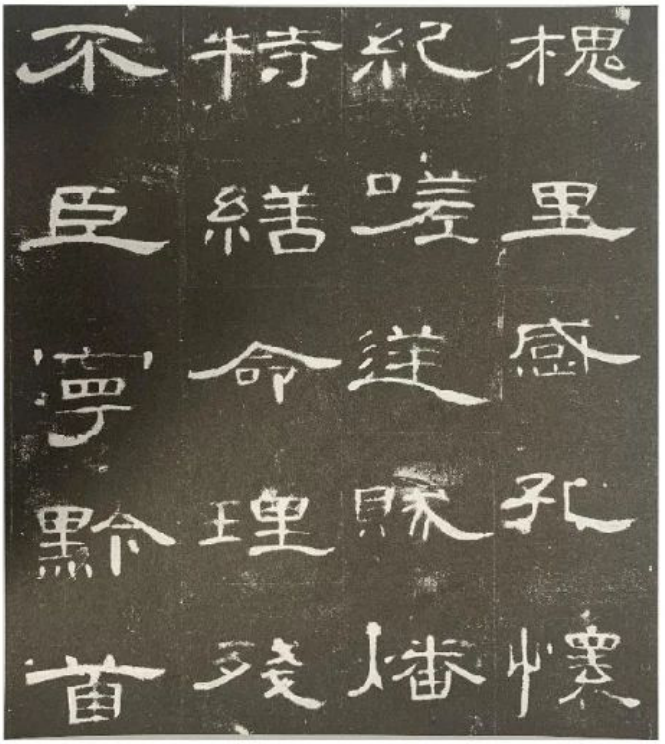 槐里感孔懷
紀嗟逆賊燔
特繕命理殘
不臣寧黔首